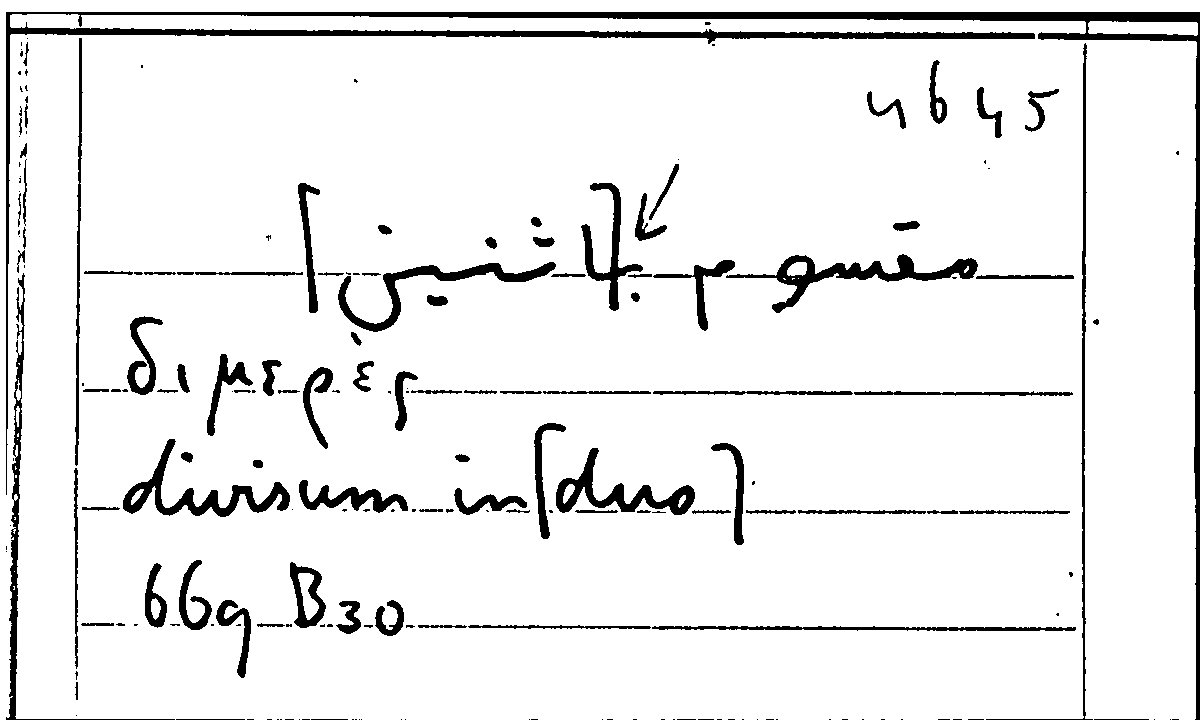 4645
مقسوم ب[اثنين]
διμερὲς
divisum in [duo]
669 B30